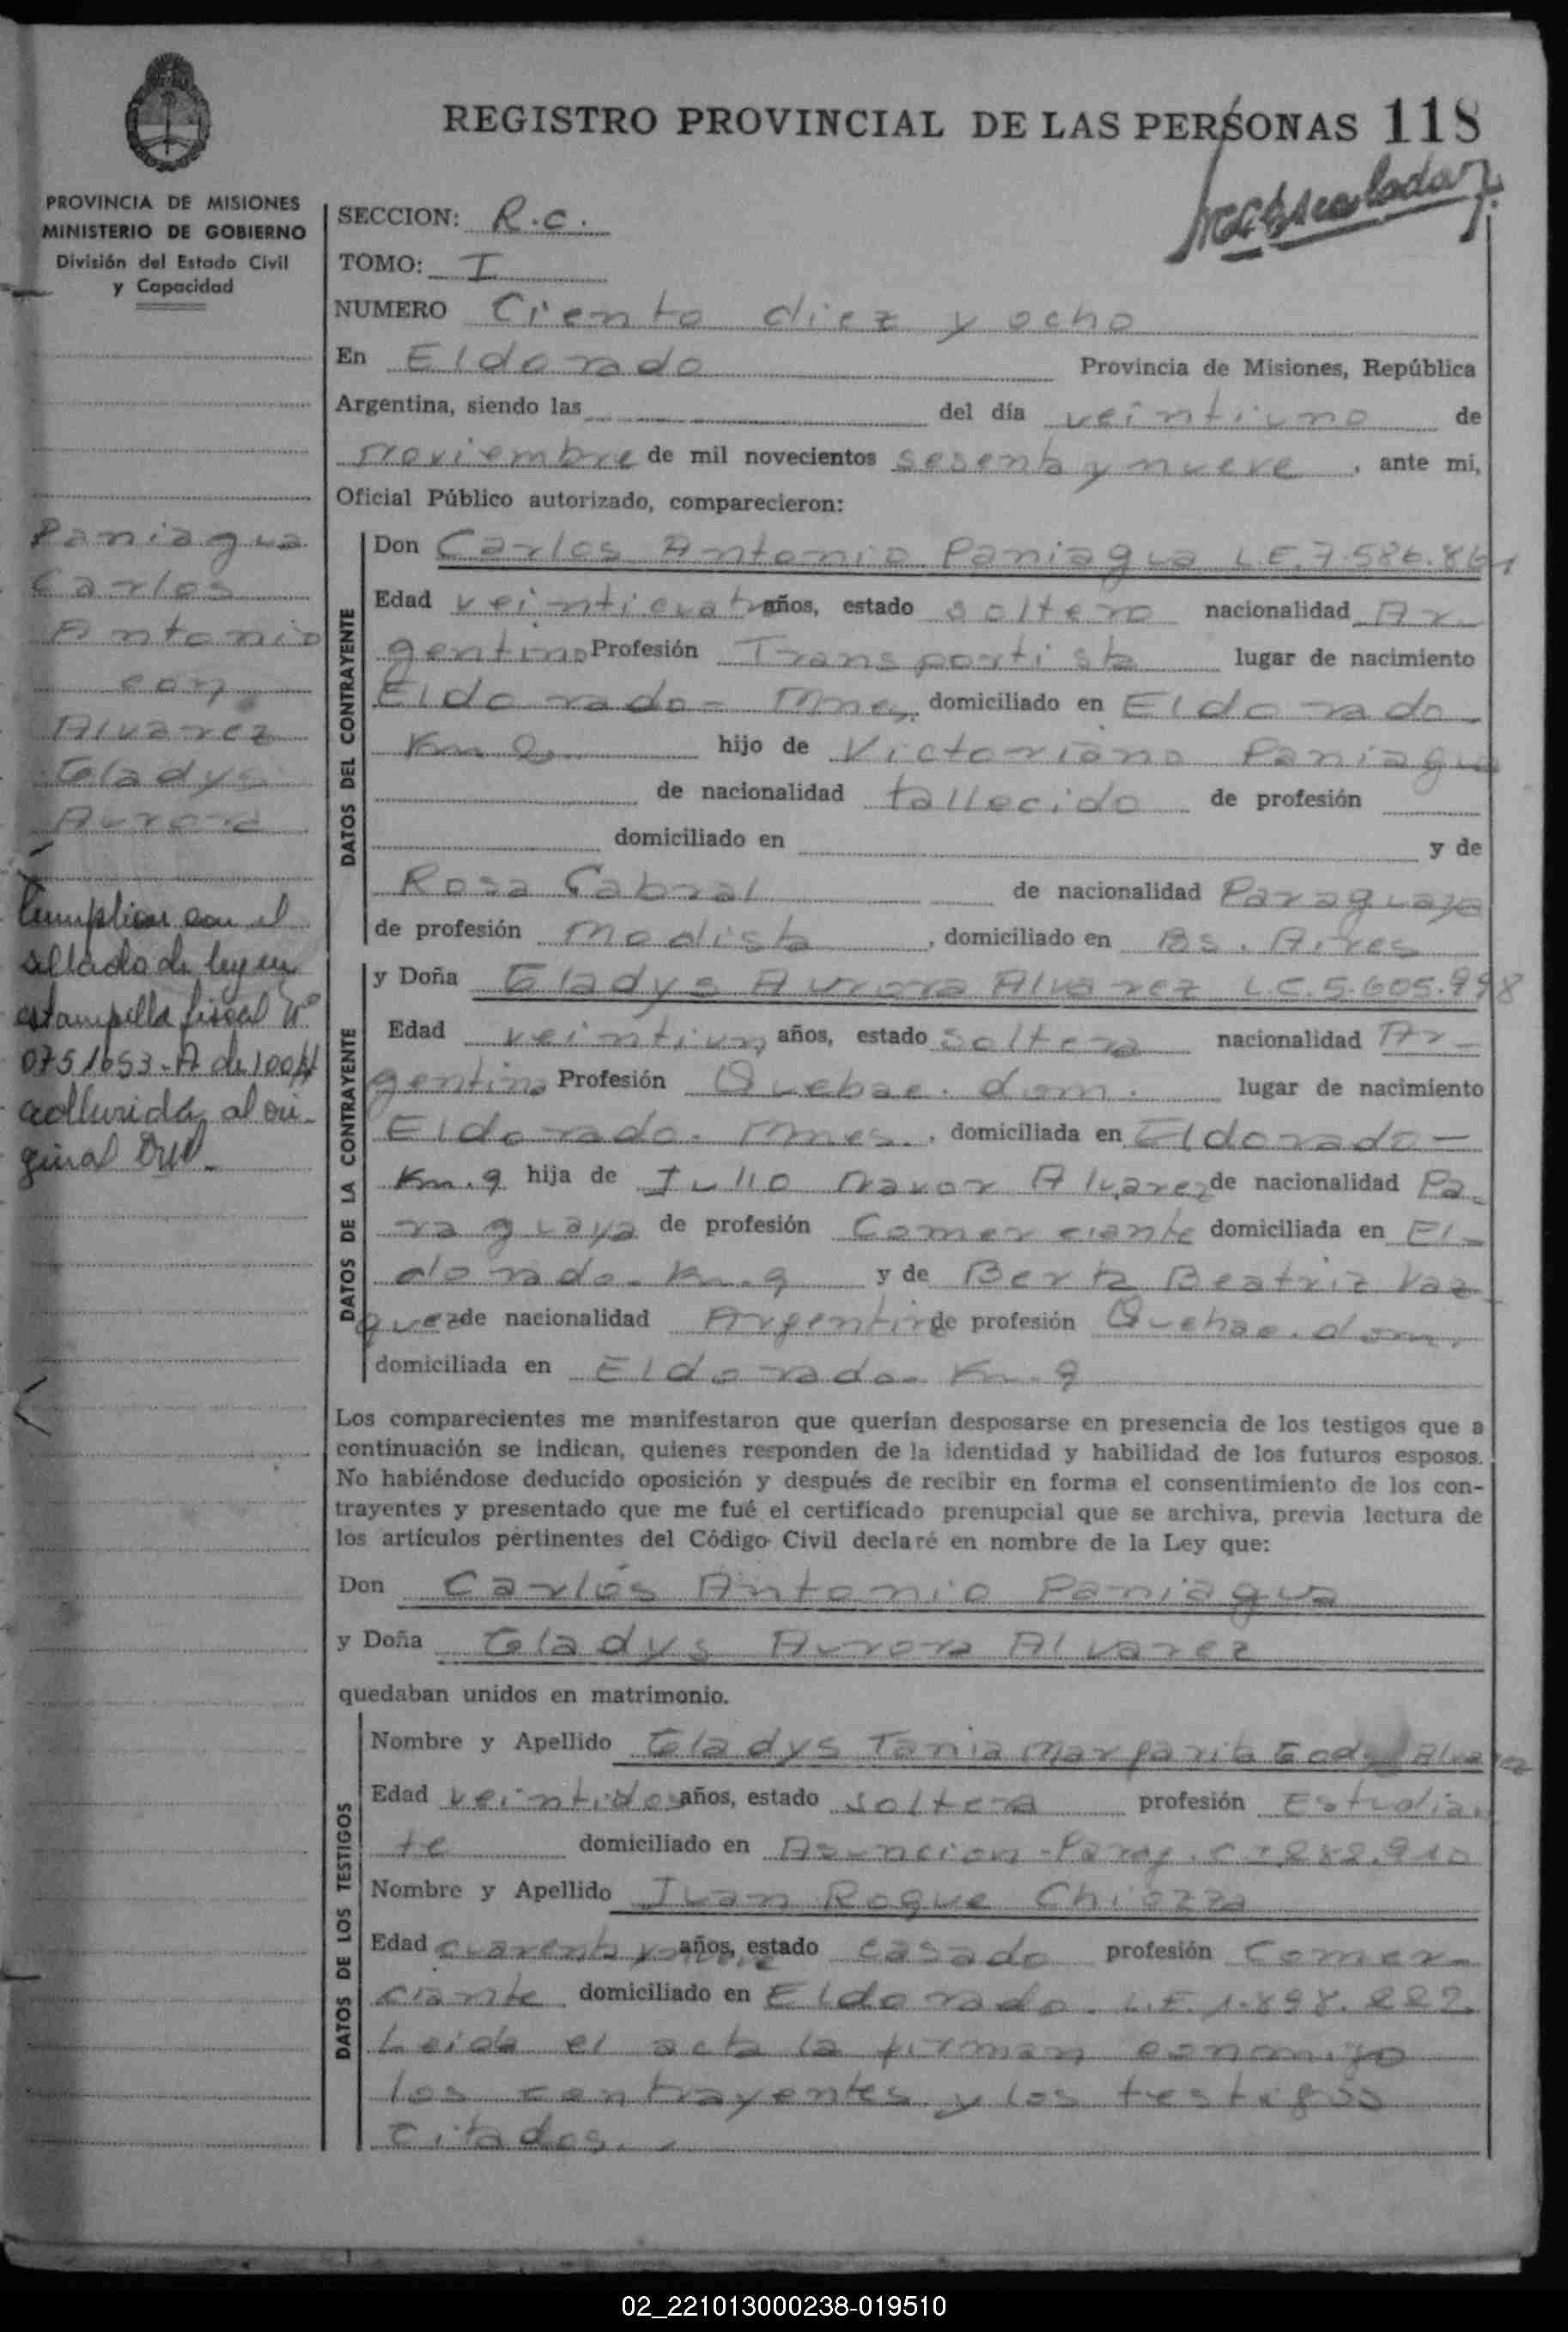 REGISTRO PROVINCIAL DE LAS PERSONAS 118
PROVINCIA DE MISIONES
MINISTERIO DE GOBIERNO
División del Estado Civil
y Capacidad
Paniagua
Carlos
Antonio
con
Alvarez
Gladys
Aurora
Cumplico con el
sellado de ley en
estampilla fiscal Nº
0751653-A de 100
adherida al ori-
ginal
SECCION: R.C.
TOMO: I
NUMERO Ciento diez y ocho
En Eldorado Provincia de Misiones, República
Argentina, siendo las del día veintiuno de
noviembre de mil novecientos sesenta y nueve, ante mi,
Oficial Público autorizado, comparecieron:
DATOS DEL CONTRAYENTE
Don Carlos Antonio Paniagua L.E. 7.586.861
Edad veinticuatro años, estado soltero nacionalidad Ar
gentino Profesión Transportista lugar de nacimiento
Eldorado - Mnes, domiciliado en Eldorado
Km 9 hijo de Victoriano Paniagua
de nacionalidad fallecido de profesión
domiciliado en y de
Rosa Cabral de nacionalidad Paraguaya
de profesión Modista, domiciliado en Bs. Aires
DATOS DE LA CONTRAYENTE
y Doña Gladys Aurora Alvarez L.C. 5.605.998
Edad veintiun años, estado soltera nacionalidad Ar-
gentina Profesión Quehac. dom. lugar de nacimiento
Eldorado. Mnes., domiciliada en Eldorado-
Km. 9 hija de Julio Navor Alvarez de nacionalidad Pa-
raguaya de profesión Comerciante domiciliada en El-
dorado. Km. 9 y de Berta Beatriz Vaz
quez de nacionalidad Argentina de profesión Quehac. dom.
domiciliada en Eldorado. Km. 9
Los comparecientes me manifestaron que querían desposarse en presencia de los testigos que a
continuación se indican, quienes responden de la identidad y habilidad de los futuros esposos.
No habiéndose deducido oposición y después de recibir en forma el consentimiento de los con-
trayentes y presentado que me fué el certificado prenupcial que se archiva, previa lectura de
los artículos pertinentes del Código Civil declaré en nombre de la Ley que:
Don Carlos Antonio Paniagua
y Doña Gladys Aurora Alvarez
quedaban unidos en matrimonio.
DATOS DE LOS TESTIGOS
Nombre y Apellido Gladys Tania Margarita Alvarez
Edad veintidos años, estado soltera profesión Estudian
te domiciliado en Asuncion-Parag. C I 282.910
Nombre y Apellido Juan Roque Chiozza
Edad cuarenta y nueve años, estado casado profesión Comer-
ciante domiciliado en Eldorado. L.E. 1.898.222.
Leida el acta la firman conmigo
los contrayentes y los testigos
citados.
02_221013000238-019510